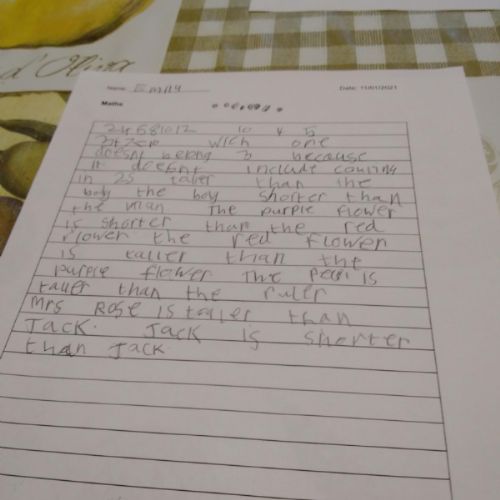 d'Oliva
Name: Emmy Date: 11/01/2021
Maths
24681012 10 4 5
wich one
doesnt belong 3 because
it doesnt include couting
in 2s taller than the
boy the boy shorter than
the man The purple flower
is shorter than the red
flower the red flower
is taller than the
purple flower The pencil is
taller than the ruler
Mrs Rose is taller than
Jack. Jack is shorter
than Jack.